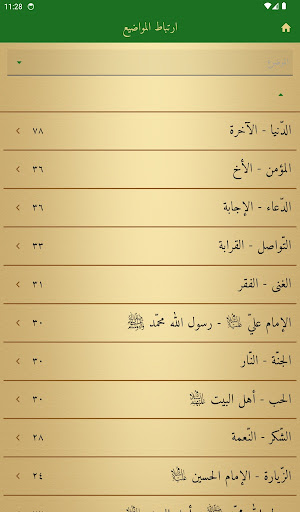 11:28
ارتباط المواضيع
الدّنيا - الآخرة ٧٨
المؤمن - الأخ ٣٦
الدّعاء - الإجابة ٣٦
التّواصل - القرابة ٣٣
الغنى - الفقر ٣١
الإمام عليّ ﷷ - رسول الله محمّد ﷺ ٣٠
الجنّة - النّار ٣٠
الحب - أهل البيت ٣٠
الشّكر - النّعمة ٢٨
الزّيارة - الإمام الحسين ٢٤